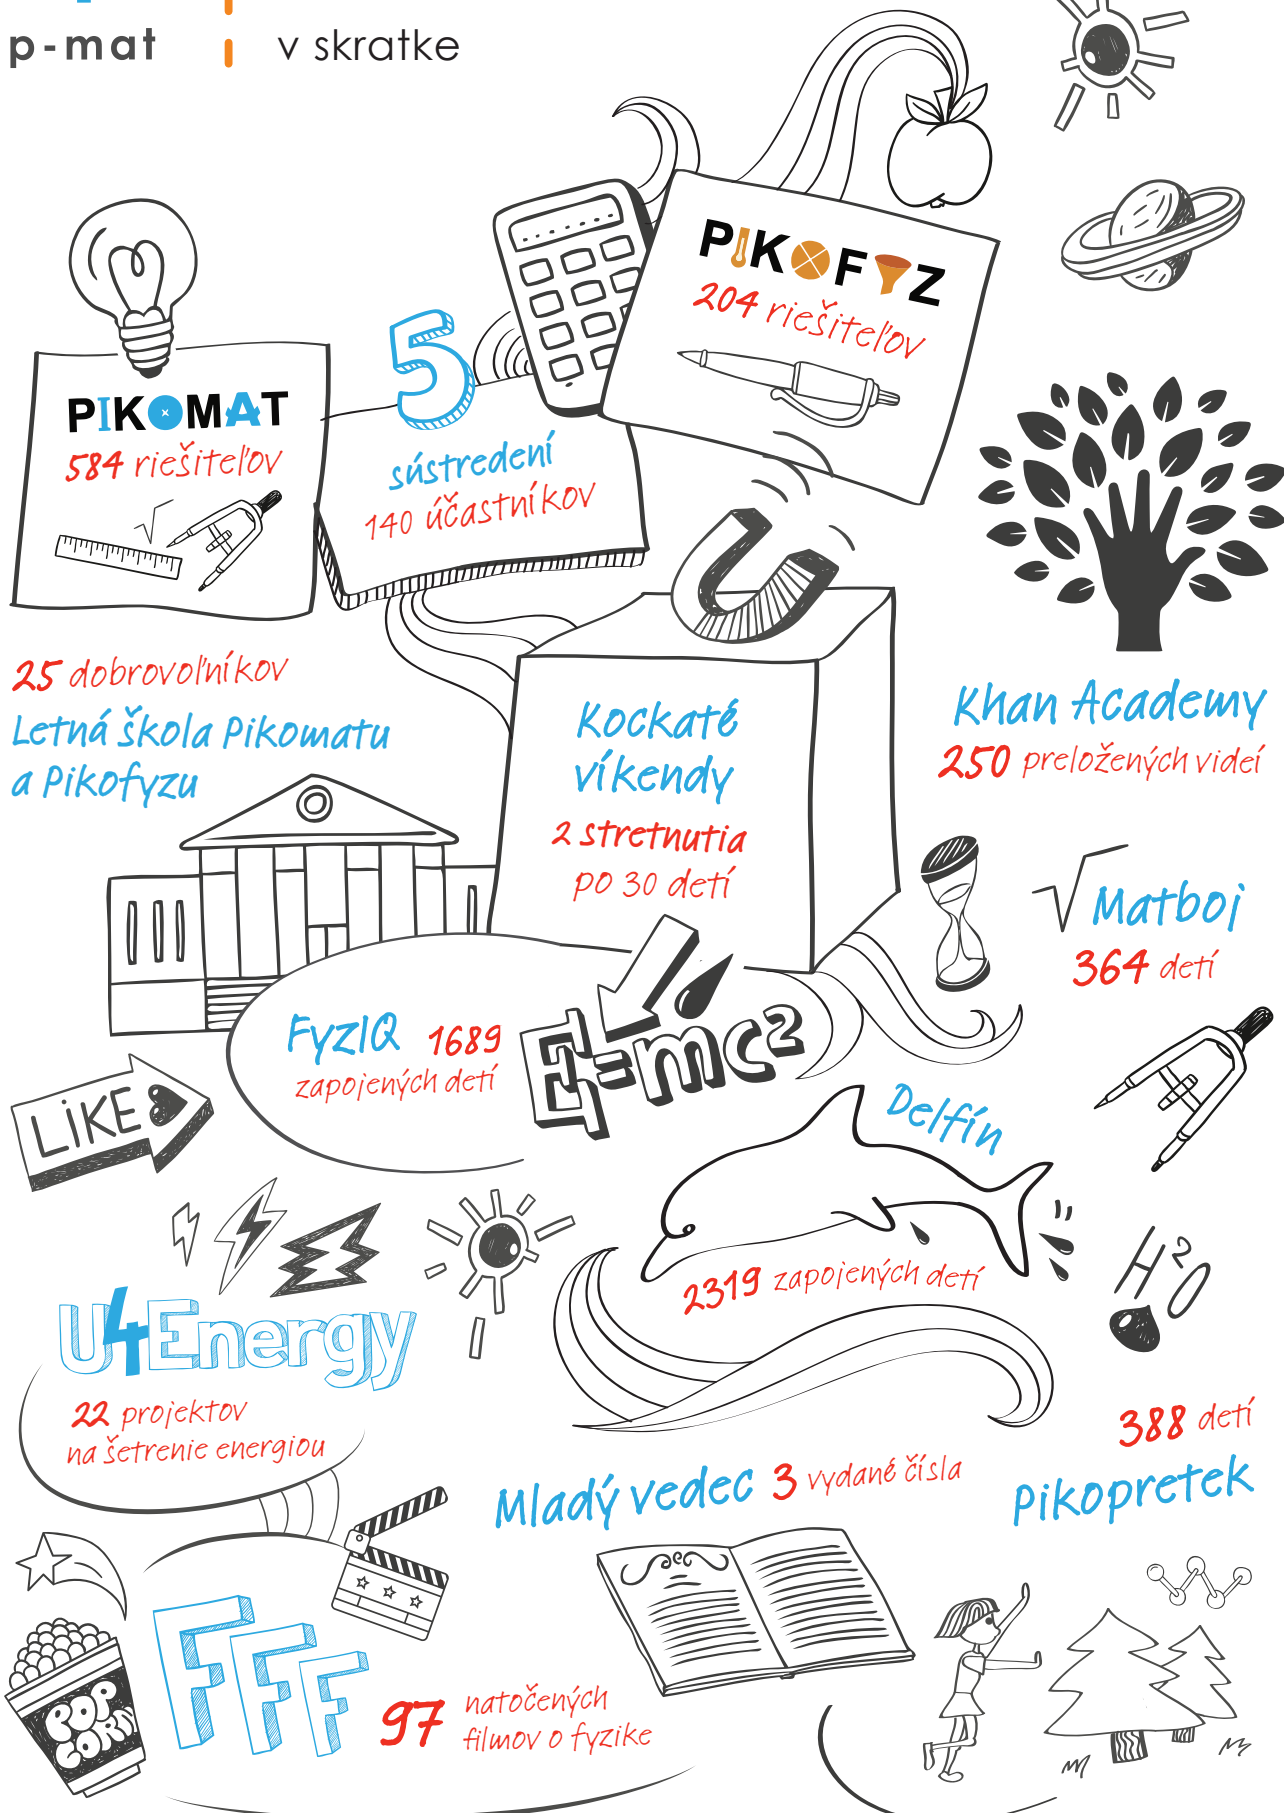 p-mat
v skratke
PIKOFYZ
204 riešiteľov
PIKOMAT
584 riešiteľov
5
sústredení
140 účastníkov
25 dobrovoľníkov
Letná škola Pikomatu
a Pikofyzu
Kockaté
víkendy
2 stretnutia
po 30 detí
Khan Academy
250 preložených videí
√ Matboj
364 detí
FyzIQ 1689
zapojených detí
E=mc²
LiKE
Delfín
2319 zapojených detí
H2O
U4Energy
22 projektov
na šetrenie energiou
388 detí
Pikopretek
Mladý vedec 3 vydané čísla
POP
CORN
FFF
97 natočených
filmov o fyzike